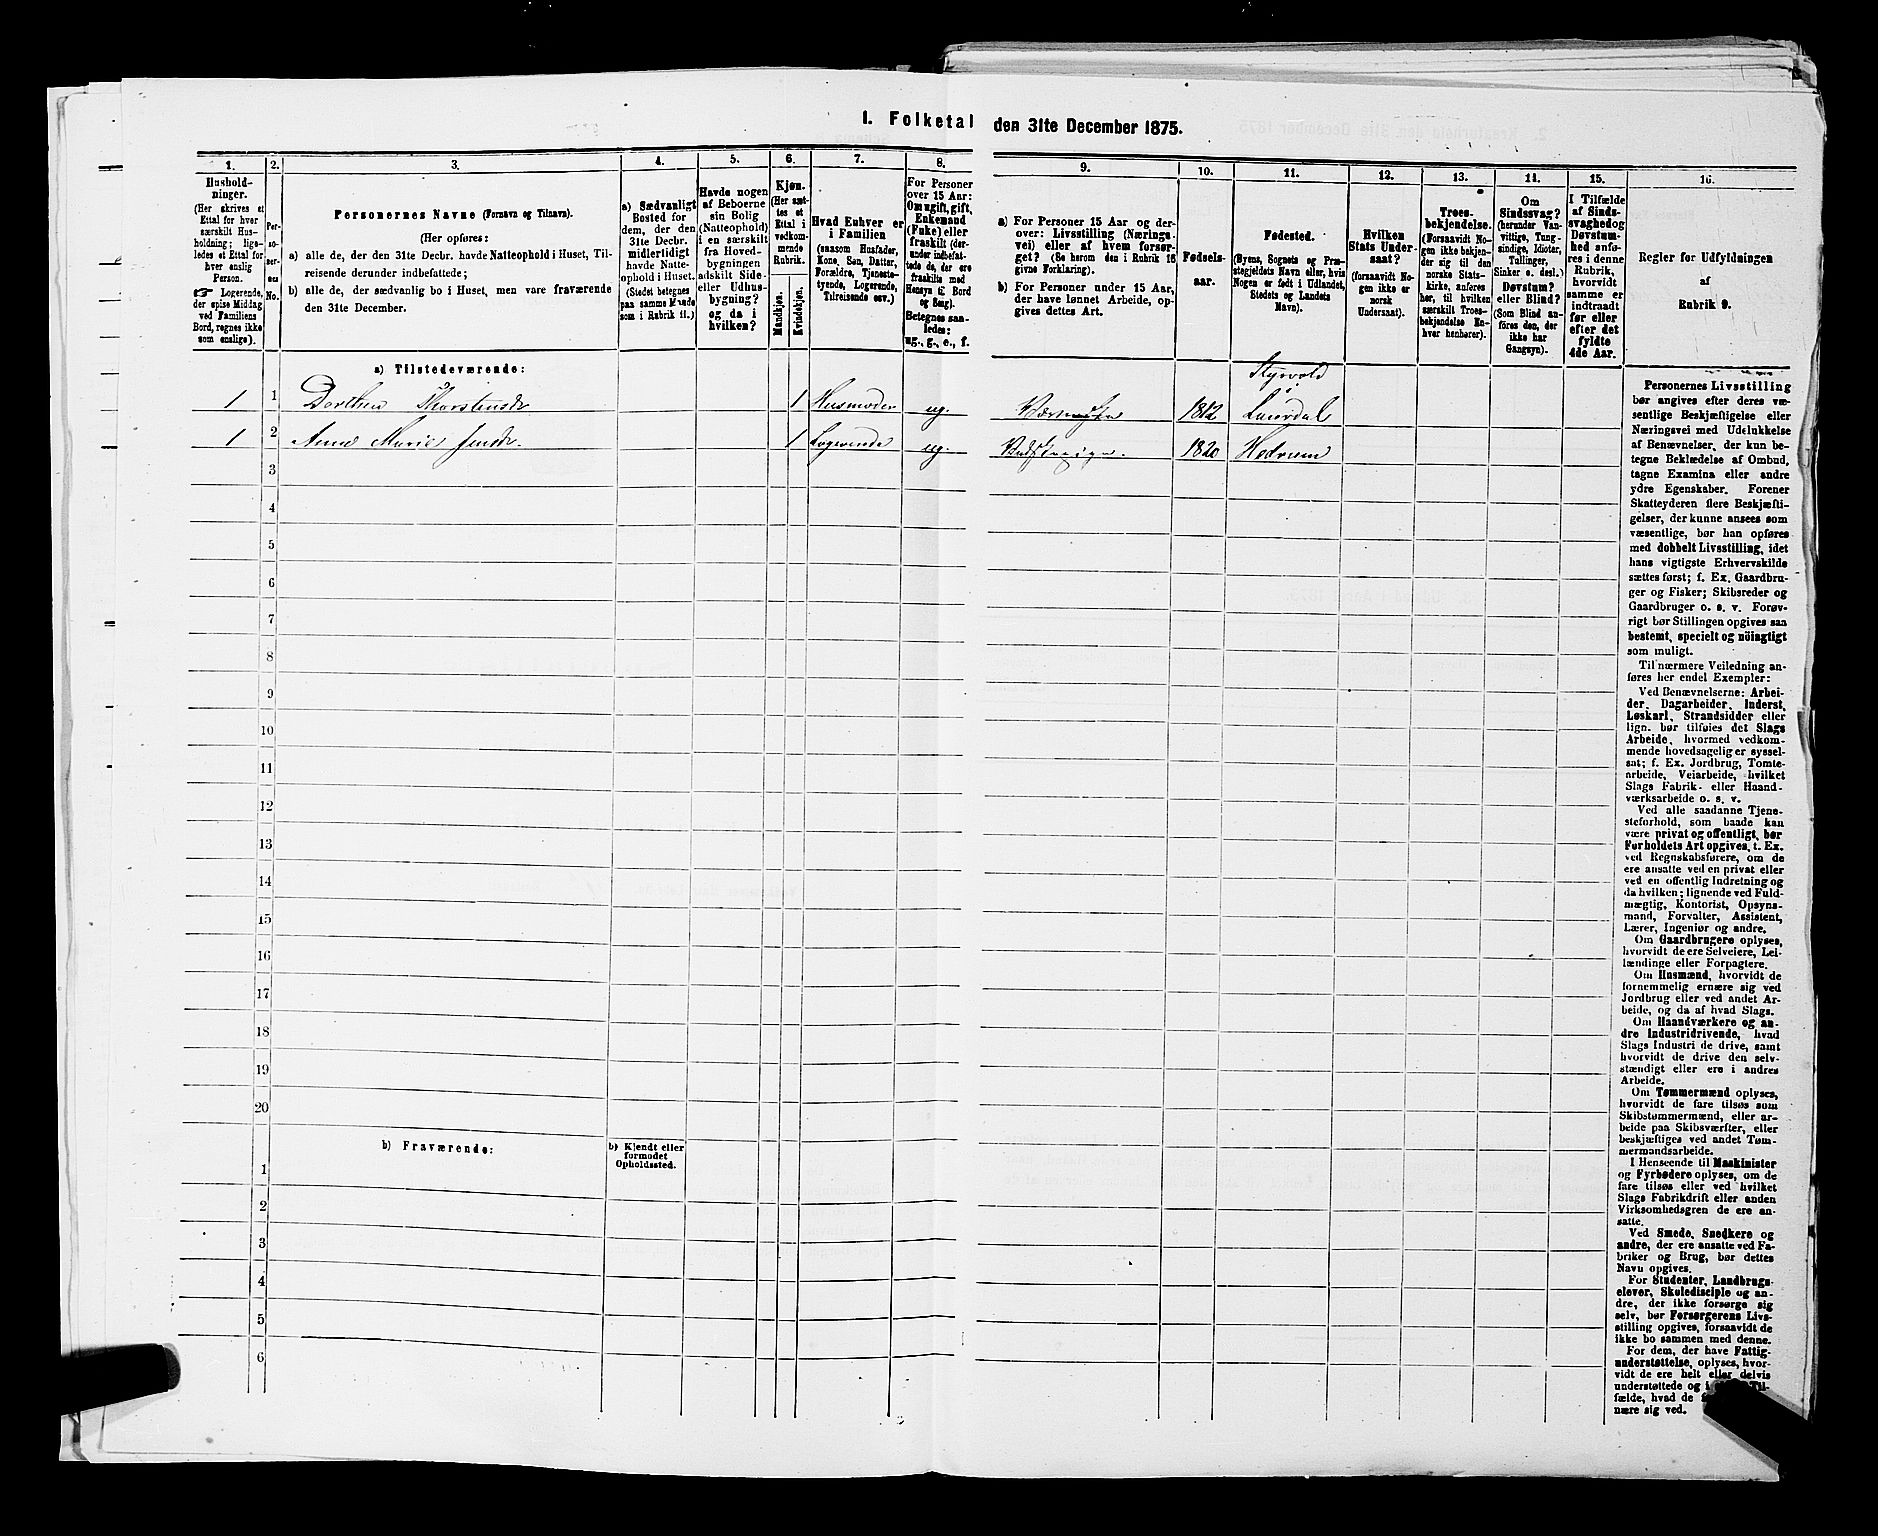 1. Folketal den 31te December 1875.
1.
Hushold-
ninger.
(Her skrives et
Ettal for hver
særskilt Hus-
holdning; lige-
ledes et Ettal for
hver enslig
Person.
☞ Logerende,
der spise Middag
ved Familiens
Bord, regnes ikke
som enslige).
2.
Per-
so-
ner-
nes
No.
3.
Personernes Navne (Fornavn og Tilnavn).
(Her opføres:
a) alle de, der den 31te Decbr. havde Natteophold i Huset, Til-
reisende derunder indbefattede;
b) alle de, der sædvanlig bo i Huset, men vare fraværende
den 31te December.
4.
a) Sædvanligt
Bosted for
dem, der den
31te Decbr.
midlertidigt
havde Natte-
ophold i Huset.
(Stedet betegnes
paa samme Maade
som i Rubrik 11.)
5.
Havde nogen
af Beboerne
sin Bolig
(Natteophold)
i en særskilt
fra Hoved-
bygningen
adskilt Side-
eller Udhus-
bygning?
og da i
hvilken?
6.
Kjøn.
(Her sæt-
tes et
Ettal i
vedkom-
mende
Rubrik.
Mandkjøn.
Kvindekjøn.
7.
Hvad Enhver er
i Familien
(saasom Husfader,
Kone, Søn, Datter,
Forældre, Tjeneste-
tyende, Logerende,
Tilreisende osv.)
8.
For Personer
over 15 Aar:
Om ugift, gift,
Enkemand
(Enke) eller
fraskilt (der-
under indbefat-
tede de, der ere
fraskilte med
Hensyn til Bord
og Seng).
Betegnes saa-
ledes:
ug., g., e., f.
9.
a) For Personer 15 Aar og der-
over: Livsstilling (Nærings-
vei) eller af hvem forsør-
get? (Se herom den i Rubrik 16
givne Forklaring).
b) For Personer under 15 Aar,
der have lønnet Arbeide, op-
gives dettes Art.
10.
Fødsels-
aar.
11.
Fødested.
(Byens, Sognets og Præ-
stegjeldets Navn eller, hvis
Nogen er født i Udlandet,
Stedets og Landets
Navn).
12.
Hvilken
Stats Under-
saat?
(forsaavidt No-
gen ikke er
norsk
Undersaat).
13.
Troes-
bekjendelse.
(Forsaavidt No-
gen ikke bekjen-
der sig til den
norske Stats-
kirke, anføres
her, til hvilken
særskilt Troes-
bekjendelse En-
hver henhører).
14.
Om
Sindssvag?
(herunder Van-
vittige, Tung-
sindige, Idioter,
Tullinger,
Sinker o. desl.)
Døvstum?
eller Blind?
(Som Blind an-
føres den, der
ikke har
Gangsyn).
15.
I Tilfælde
af Sinds-
svaghed og
Døvstum-
hed anfø-
res i denne
Rubrik,
hvorvidt
samme er
indtraadt
før eller
efter det
fyldte
4de Aar.
16.
Regler for Udfyldningen
af
Rubrik 9.
a) Tilstedeværende:
Styrvold
i
1 1 Dorthea Thorstensdr 1 Husmoder ug. 1812 Laurdal
1 2 Anne Marie Jensdr. 1 Logerende ug. 1820 Hedrum
3
4
5
6
7
8
9
10
11
12
13
14
15
16
17
18
19
20
b) Fraværende:
b) Kjendt eller
formodet
Opholdssted.
1
2
3
4
5
6
Personernes Livsstilling
bør angives efter deres væ-
sentlige Beskjæftigelse eller
Næringsvei med Udelukkelse
af Benævnelser, der kun be-
tegne Beklædelse af Ombud,
tagne Examina eller andre
ydre Egenskaber. Forener
Skatteyderen flere Beskjæfti-
gelser, der kunne ansees som
væsentlige, bør han opføres
med dobbelt Livsstilling, idet
hans vigtigste Erhvervskilde
sættes først; f. Ex. Gaardbru-
ger og Fisker; Skibsreder og
Gaardbruger o. s. v. Forøv-
rigt bør Stillingen opgives saa
bestemt, specielt og nöiagtigt
som muligt.
Til nærmere Veiledning an-
føres her endel Exempler:
Ved Benævnelserne: Arbei-
der, Dagarbeider, Inderst,
Løskarl, Strandsidder eller
lign. bør tilføies det Slags
Arbeide, hvormed vedkom-
mende hovedsagelig er syssel-
sat; f. Ex. Jordbrug, Tomte-
arbeide, Veiarbeide, hvilket
Slags Fabrik- eller Haand-
værksarbeide o. s. v.
Ved alle saadanne Tjene-
steforhold, som baade kan
være privat og offentligt, bør
Forholdets Art opgives, t. Ex.
ved Regnskabsførere, om de
ere ansatte ved en privat eller
ved en offentlig Indretning og
da hvilken; lignende ved Fuld-
mægtig, Kontorist, Opsyns-
mand, Forvalter, Assistent,
Lærer, Ingeniør og andre.
Om Gaardbrugere oplyses,
hvorvidt de ere Selveiere, Lei-
lændinge eller Forpagtere.
Om Husmænd, hvorvidt de
fornemmelig ernære sig ved
Jordbrug eller ved andet Ar-
beide, og da af hvad Slags.
Om Haandværkere og an-
dre Industridrivende, hvad
Slags Industri de drive, samt
hvorvidt de drive den selv-
stændigt eller ere i andres
Arbeide.
Om Tømmermænd oplyses,
hvorvidt de fare tilsøs som
Skibstømmermænd, eller ar-
beide paa Skibsværfter, eller
beskjæftiges ved andet Tøm-
mermandsarbeide.
I Henseende til Maskinister
og Fyrbødere oplyses, om de
fare tilsøs eller ved hvilket
Slags Fabrikdrift eller anden
Virksomhedsgren de ere an-
satte.
Ved Smede, Snedkere og
andre, der ere ansatte ved Fa-
briker og Brug, bør dettes
Navn opgives.
For Studenter, Landbrugs-
elever, Skoledisciple og an-
dre, der ikke forsørge sig
selv, bør Forsørgerens Livs-
stilling opgives, forsaavidt de
ikke bo sammen med denne.
For dem, der have Fattig-
understøttelse, oplyses, hvor-
vidt de ere helt eller delvis
understøttede og i Til-
fælde, hvad de
nære sig ved.